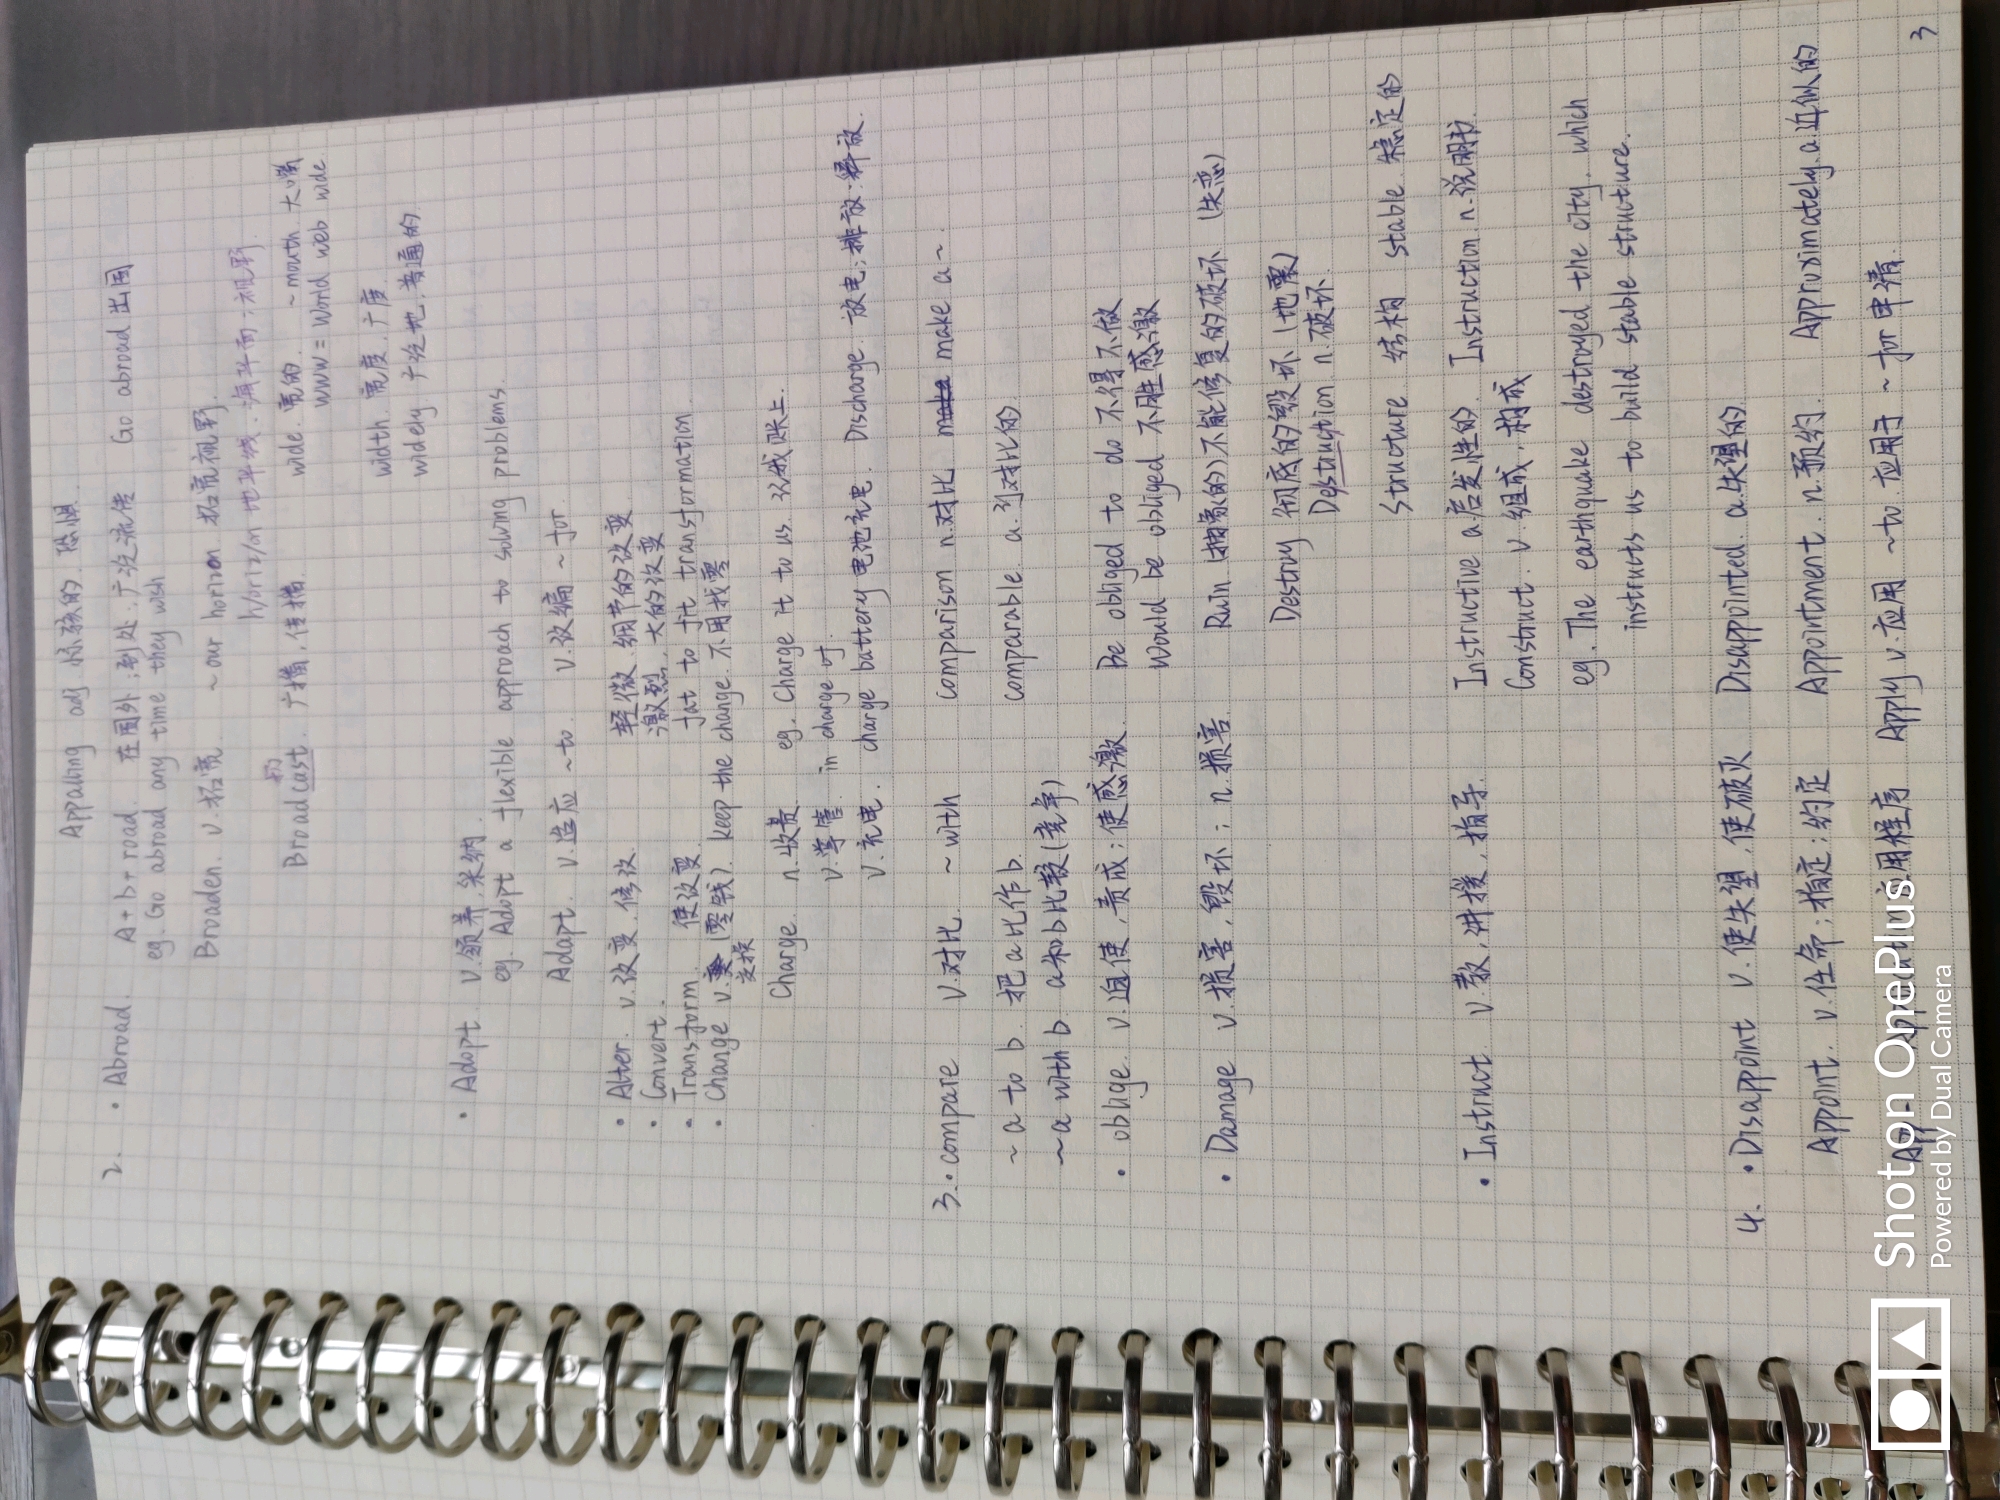 Appaling adj. 惊骇的. 恐惧.
2. · Abroad. A+b+road. 在国外;到处;广泛流传 Go abroad 出国
eg. Go abroad any time they wish
Broaden. v.拓宽. ~ our horizon 拓宽视野.
h/oriz/on 地平线. 海平面;视野.
扔
Broadcast. 广播,传播
wide. 宽的. ~mouth 大嘴
www = world web wide
width. 宽度.广度
widely 广泛地.普通的.
· Adopt. v.领养.采纳.
eg. Adopt a flexible approach to solving problems.
Adapt. v.适应 ~to. v.改编 ~for.
· Alter. v.改变.修改. 轻微.细节的改变
· Convert. 激烈.大的改变
· Transform. 使改变. fat to fit transformation.
· Change v. (零钱). keep the change.不用找零
交换
Charge. n.收费. eg. Charge it to us. 记我账上.
v.掌管. in charge of.
v.充电. charge battery 电池充电. Discharge. 放电;排放;释放.
3.·compare v.对比. ~with comparison n.对比 make make a~.
~a to b 把a比作b. comparable a.可对比的.
~a with b a和b比较(竞争)
· oblige. v.迫使,责成;使感激. Be obliged to do 不得不做
Would be obliged 不胜感激
· Damage v.损害,毁坏; n.损害. Ruin (抽象的)不能修复的破坏 (失恋)
Destroy 彻底的毁坏 (地震)
Destruction n.破坏.
Structure. 结构 stable.稳定的
· Instruct v.教,讲授,指导. Instructive a.启发性的. Instruction.n.说明书.
Construct. v.组成,构成
eg. The earthquake destroyed the city. which
instructs us to build stable structure.
4. ·Disappoint v.使失望,使破灭 Disappointed. a.失望的.
Appoint. v.任命;指定;约定 Appointment. n.预约. Approximately.a.近似的
应用程序 Apply v.应用 ~to.应用于 ~for申请.
3
Shot on OnePlus
Powered by Dual Camera